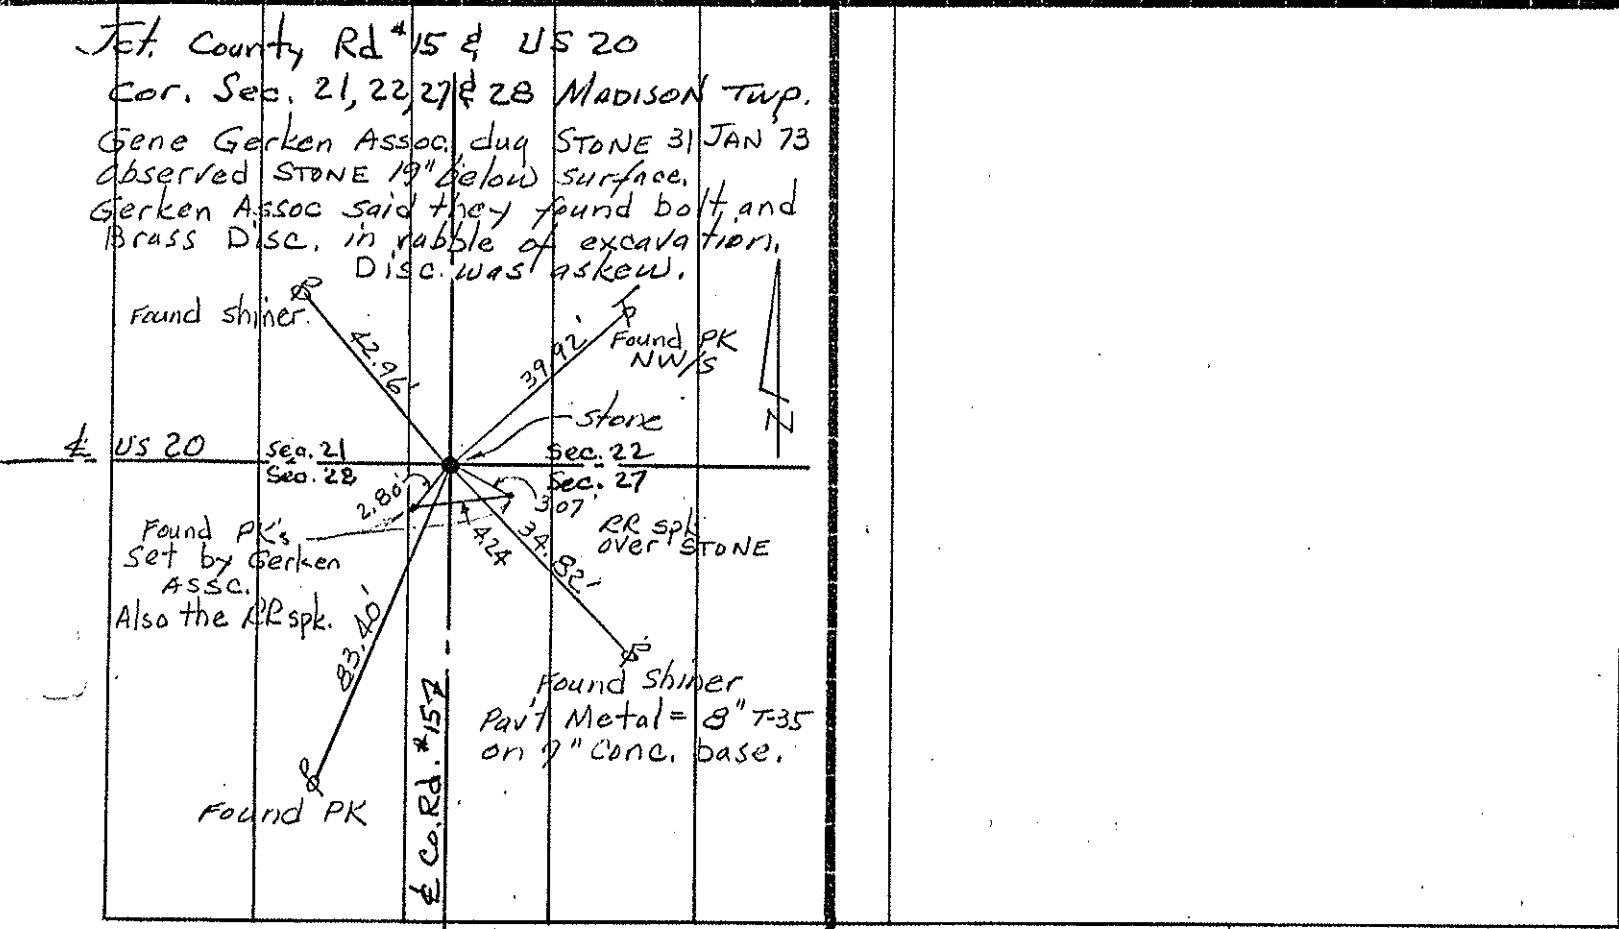 Jct. County Rd #15 & US 20
Cor. Sec. 21, 22, 27 & 28 MADISON Twp.
Gene Gerken Assoc. dug STONE 31 JAN '73
observed STONE 19" below surface.
Gerken Assoc said they found bolt and
Brass Disc. in rubble of excavation.
Disc. was askew.
Found shiner.
42.96'
39.92'
Found PK
NW/S
N
Stone
℄ US 20
Sec. 21
Sec. 22
Sec. 28
Sec. 27
2.80'
3.07'
4.24
34.82'
RR spk
over STONE
Found PK's
set by Gerken
ASSC.
Also the RR spk.
83.40'
Found Shiner
Pav't Metal = 8" T-35
on 9" Conc. base.
Found PK
℄ Co. Rd. #15